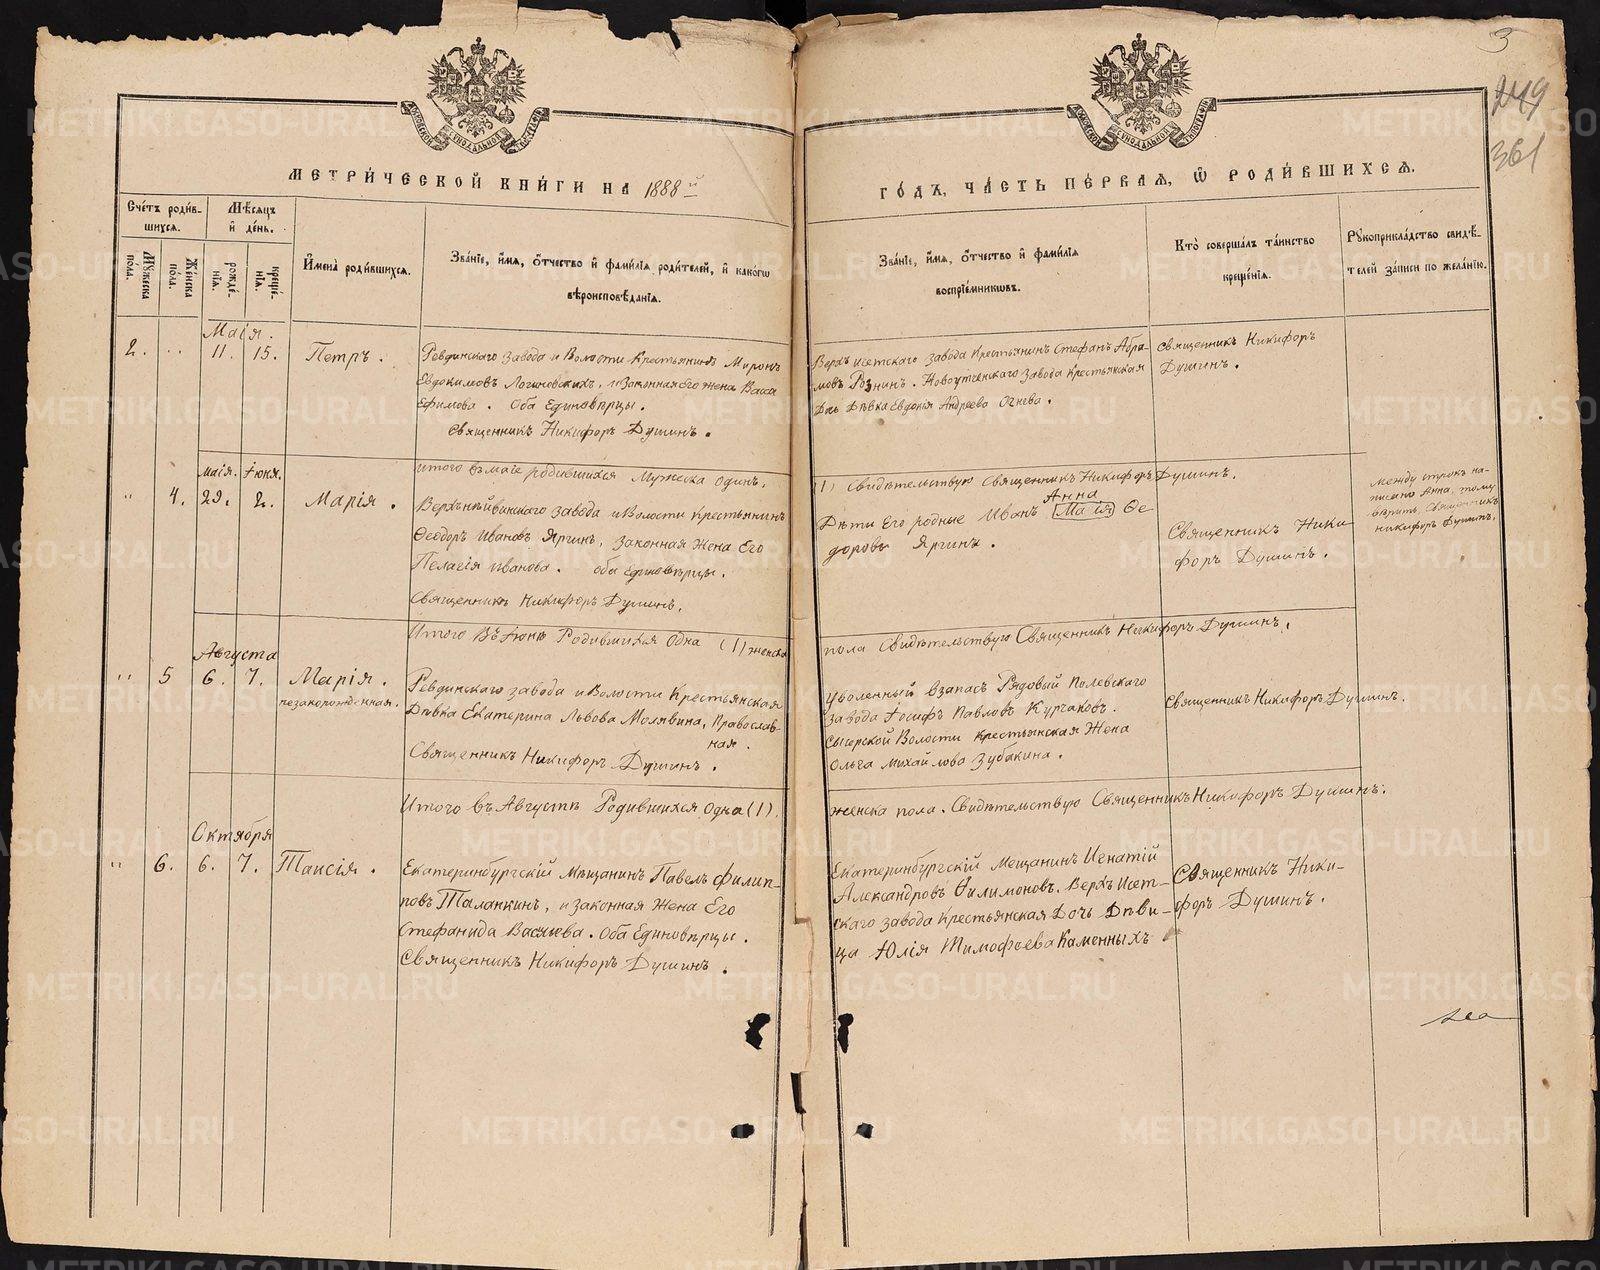 3
249
361
МЕТРИ́ЧЕСКОЙ КНИ́ГИ НА 1888й
ГО́ДЪ, ЧА́СТЬ ПЕ́РВАЯ, Ѡ РОДИ́ВШИХСЯ.
Сче́тъ роди́в-
шихся.
Мѣ́сяцъ
и҆ де́нь.
Мꙋжеска
пола.
Женска
пола.
рожде́-
нїя.
креще́-
нїя.
И҆мена̀ роди́вшихся.
Зва́нїе, и҆́мя, ѻ҆́тчество и҆ фами́лїа роди́телей, и҆ како́гѡ
вѣроисповѣ́данїя.
Зва́нїе, и҆́мя, ѻ҆́тчество и҆ фами́лїа
воспрїе́мникѡвъ.
Кто̀ соверша́лъ та́инство
креще́нїя.
Рꙋкоприкла́дство свидѣ́-
телей за́писи по жела́нїю.
Маія.
2. „ 11. 15. Петръ.
Ревдинскаго Завода и Волости Крестьянинъ Миронъ
Евдокимовъ Логиновскихъ, и Законная Его жена Васса
Ефимова. Оба Единовѣрцы.
Священникъ Никифоръ Душинъ.
Верхъ исетскаго завода крестьянинъ Стефанъ Абра-
мовъ Рознин. Новоуткинскаго Завода крестьянская
Дочь Дѣвка Евдокія Андреева Огнева.
Священникъ Никифоръ
Душинъ.
Итого въ маіе родившихся Мужеска один.
(1) Свидѣтельствую Священникъ Никифоръ Душинъ.
маія. Іюня.
„ 4. 29. 2. Марія.
Верхънейвинскаго завода и Волости крестьянинъ
Ѳеодоръ Ивановъ Яргинъ, Законная Жена Его
Пелагія иванова. оба единовѣрцы.
Священникъ Никифоръ Душинъ.
Анна
Дѣти Его родные Иванъ Маія Ѳе
доровы Яргины.
Священникъ Ники
форъ Душинъ.
Между строкъ на-
писано Анна, тому
вѣрить, Священникъ
Никифоръ Душинъ.
Итого Въ Іюнѣ Родившихся Одна (1) женска
пола Свидѣтельствую Священникъ Никифоръ Душинъ.
Августа
„ 5 6. 7. Марія.
незаконорожденная.
Ревдинскаго завода и Волости Крестьянская
Дѣвка Екатерина Львова Молявина, Православ-
ная.
Священникъ Никифоръ Душинъ.
Уволенный Взапасъ Рядовый Полевскаго
завода Іосифъ Павловъ Курчаковъ.
Сысерской Волости крестьянская Жена
Ольга Михайлова Зубакина.
Священникъ Никифоръ Душинъ.
Итого въ Августѣ Родившихся Одна (1).
женска пола. Свидѣтельствую Священникъ Никифоръ Душинъ.
Октября
„ 6. 6. 7. Таисія.
Екатеринбургскій Мѣщанинъ Павелъ Филип-
повъ Таланкинъ, и Законная Жена Его
Стефанида Васильева. Оба Единовѣрцы.
Священникъ Никифоръ Душинъ.
Екатеринбургскій Мещанинъ Игнатій
Александровъ Филимоновъ. Верхъ Исет-
скаго завода крестьянская Дочь Дѣви-
ца Юлія Тимофѣева Каменныхъ
Священникъ Ники-
форъ Душинъ.
METRIKI.GASO-URAL.RU